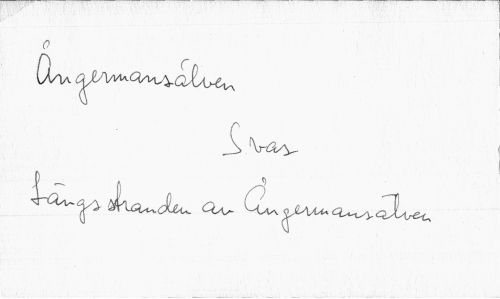 Ångermansälven
Svas
Längs stranden av Ångermansälven